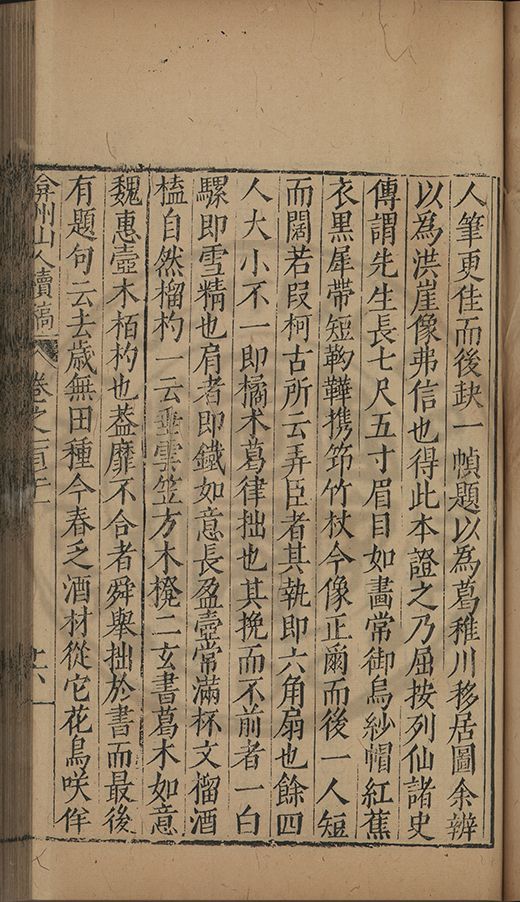 人筆更佳而後缺一幀題以爲葛稚川移居圖余辨
以爲洪崖像弗信也得此本證之乃屈按列仙諸史
傳謂先生長七尺五寸眉目如畫常御烏紗帽紅蕉
衣黑犀帶短靿鞾携笻竹杖今像正爾而後一人短
而闊若叚柯古所云弄臣者其執即六角扇也餘四
人大小不一即橘术葛律拙也其挽而不前者一白
騾即雪精也肩者即鐵如意長盈壺常滿杯文榴酒
榼自然榴杓一云垂雲笠方木櫈二玄書葛木如意
魏惠壺木栢杓也葢靡不合者舜舉拙於書而最後
有題句云去歲無田種今春乏酒材從它花鳥咲佯
弇州山人續稿 卷之一百